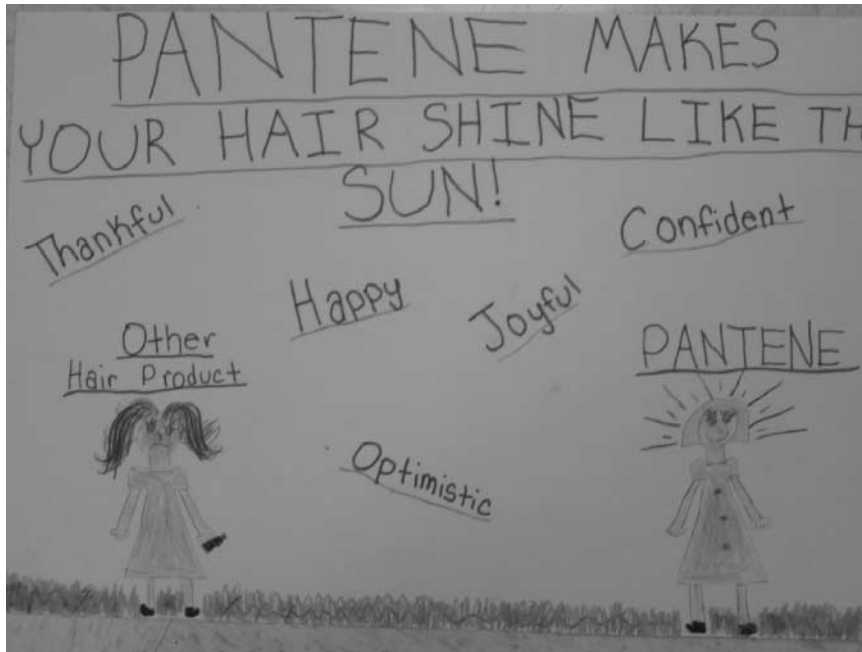 PANTENE MAKES
YOUR HAIR SHINE LIKE TH
SUN!
Thankful
Confident
Happy
Joyful
Other
Hair Product
PANTENE
Optimistic